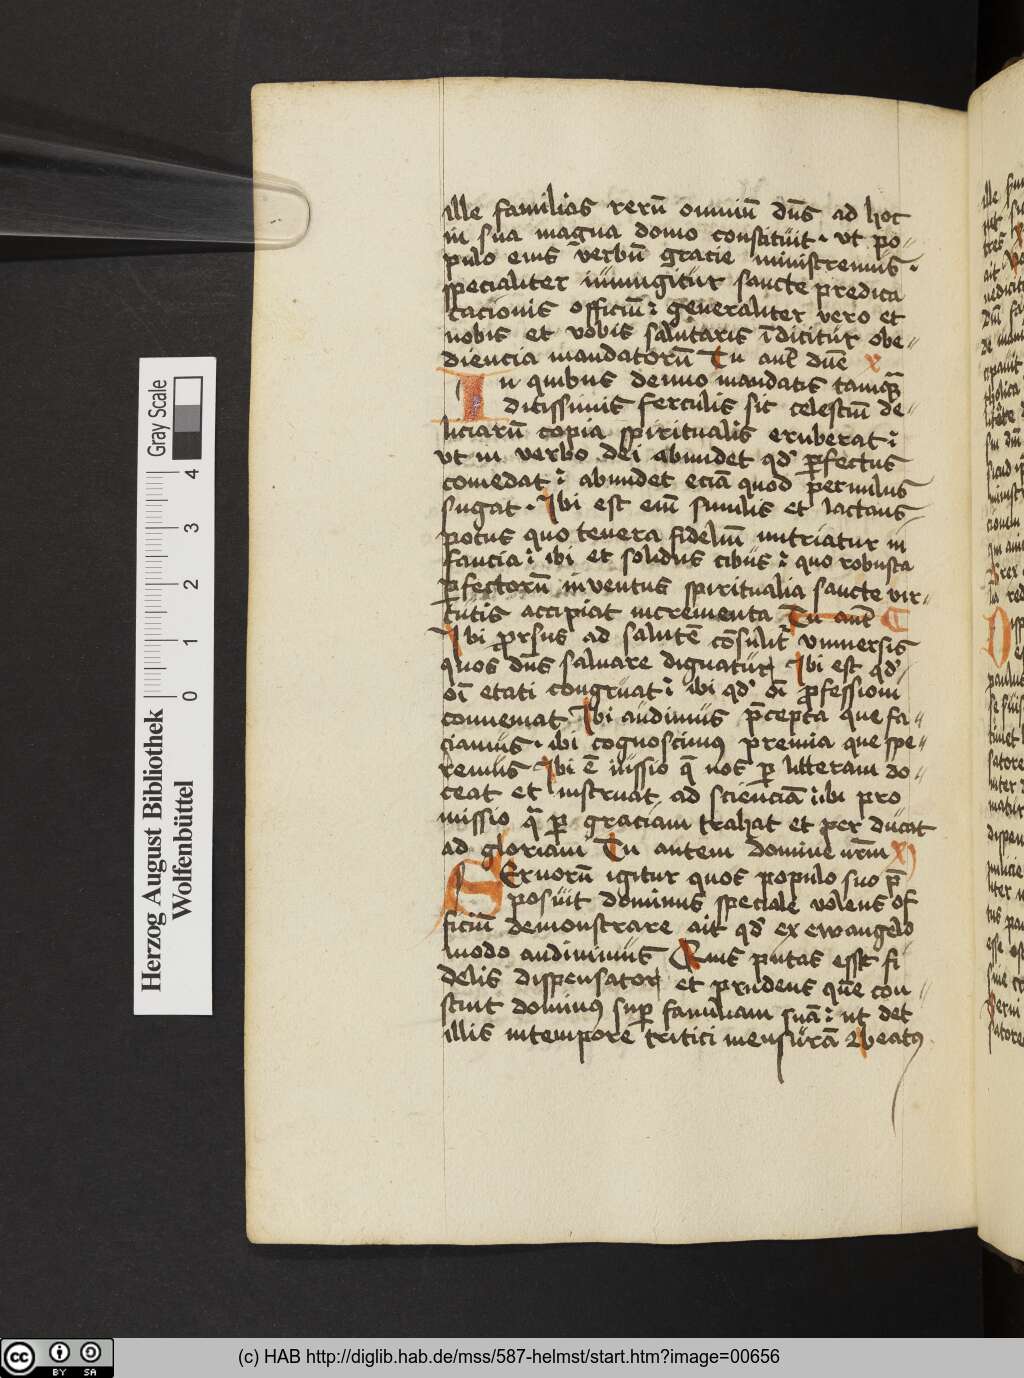 ille familias rerū omniū dn̄s ad hoc
in sua magna domo constituit · vt po-
pulo eius verbū gracie ministremus ·
specialiter iniungitur sancte predica
tacionis officiū : generaliter vero et
nobis et vobis salutaris īdicitur obe-
diencia mandatorū Tu aut̄ dn̄e x
In quibus denuo mandatis tamq̄
ditissimis ferculis sic celestiū de-
liciarū copia spiritualis exuberat :
vt in verbo dei abundet qd' ꝑfectus
comedat : abundet eciā quod ꝑuulus
sugat · Ibi est em̄ similis et lactans
potus quo tenera fideliū nutriatur in
fancia : ibi et solidus cibus : quo robusta
ꝑfectorū iuventus spiritualia sancte vir-
tutis accipiat incrementa Tu aut̄
Ibi prorsus ad salutē cōsulit' vniuersis
quos dn̄s saluare dignatur Ibi est qd'
oī etati congruat : ibi qd' oī ꝓfessioni
conueniat Ibi audimus p̄cepta que fa-
ciamus · ibi cognoscimus premia que spe-
remus Ibi ē iussio q̄ nos ꝑ litteram do-
ceat et instruat ad scienciā : ibi pro
missio q̄ ꝑ graciam trahat et per ducat
ad gloriam Tu autem domine nr̄m x
SEruorū igitur quos populo suo p̄
posuit dominus speciale volens of
ficiū demonstrare ait qd' ex ewangelio
modo audiuimus Quis putas esse fi
delis dispensator et prudens quē con
stituit dominus suꝑ familiam suā : ut det
illis in tempore tritici mensurā Beatus
Herzog August Bibliothek
Wolfenbüttel
Gray Scale
0 1 2 3 4
(c) HAB http://diglib.hab.de/mss/587-helmst/start.htm?image=00656
cc BY SA